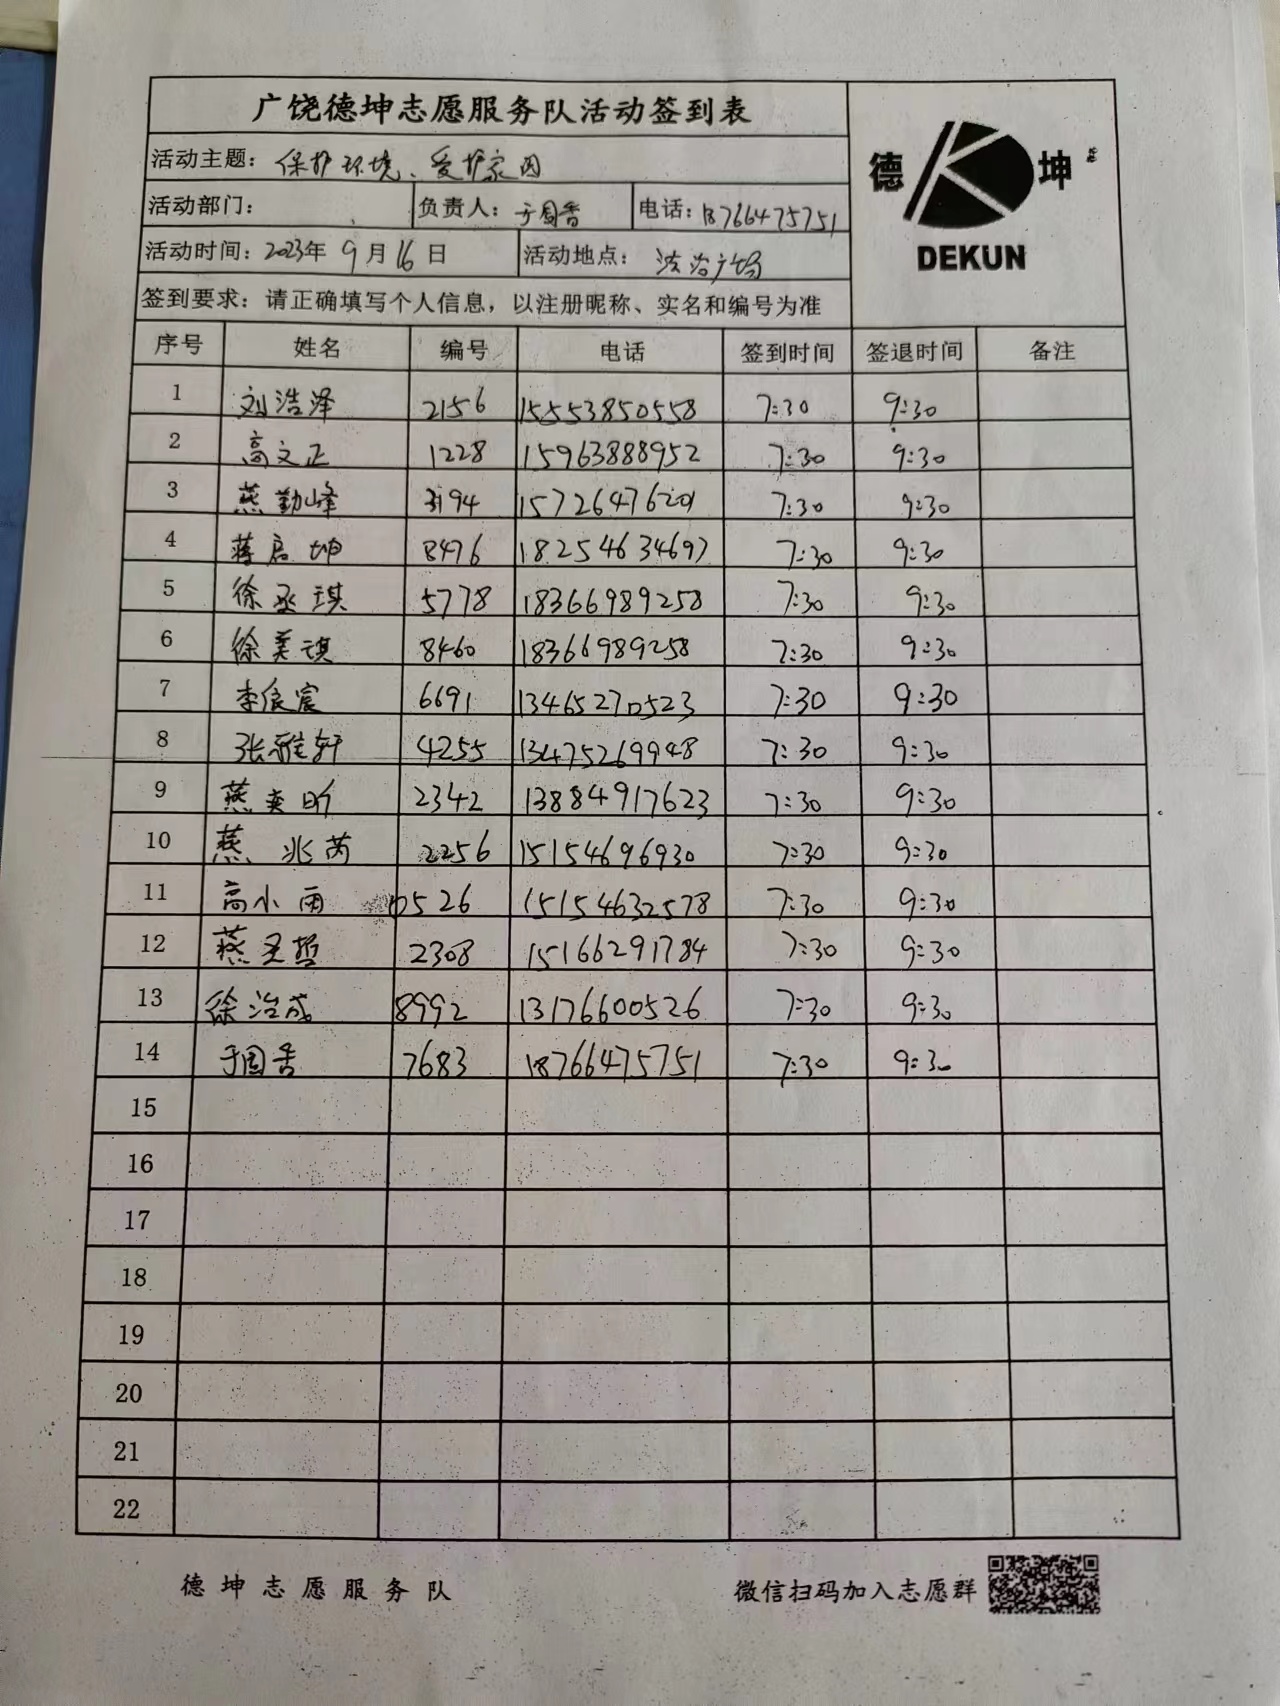 广饶德坤志愿服务队活动签到表
德 坤
DEKUN
活动主题：保护环境、爱护家园
活动部门： 负责人：于国香 电话：18766475751
活动时间：2023年 9月 16日 活动地点：法治广场
签到要求：请正确填写个人信息，以注册昵称、实名和编号为准
序号 姓名 编号 电话 签到时间 签退时间 备注
1 刘浩泽 2156 15553850558 7:30 9:30
2 高文正 1228 15963888952 7:30 9:30
3 燕勤峰 3194 15726476201 7:30 9:30
4 蒋启坤 8476 18254634697 7:30 9:30
5 徐丞琪 5778 18366989258 7:30 9:30
6 徐美琪 8460 18366989258 7:30 9:30
7 李俍宸 6691 13465270523 7:30 9:30
8 张雅轩 4255 13475269948 7:30 9:30
9 燕奕昕 2342 13884917623 7:30 9:30
10 燕兆芮 2256 15154696930 7:30 9:30
11 高小雨 0526 15154632578 7:30 9:30
12 燕圣哲 2308 15166291784 7:30 9:30
13 徐治成 8992 13176600526 7:30 9:30
14 于国香 7683 18766475751 7:30 9:30
15
16
17
18
19
20
21
22
德坤志愿服务队 微信扫码加入志愿群